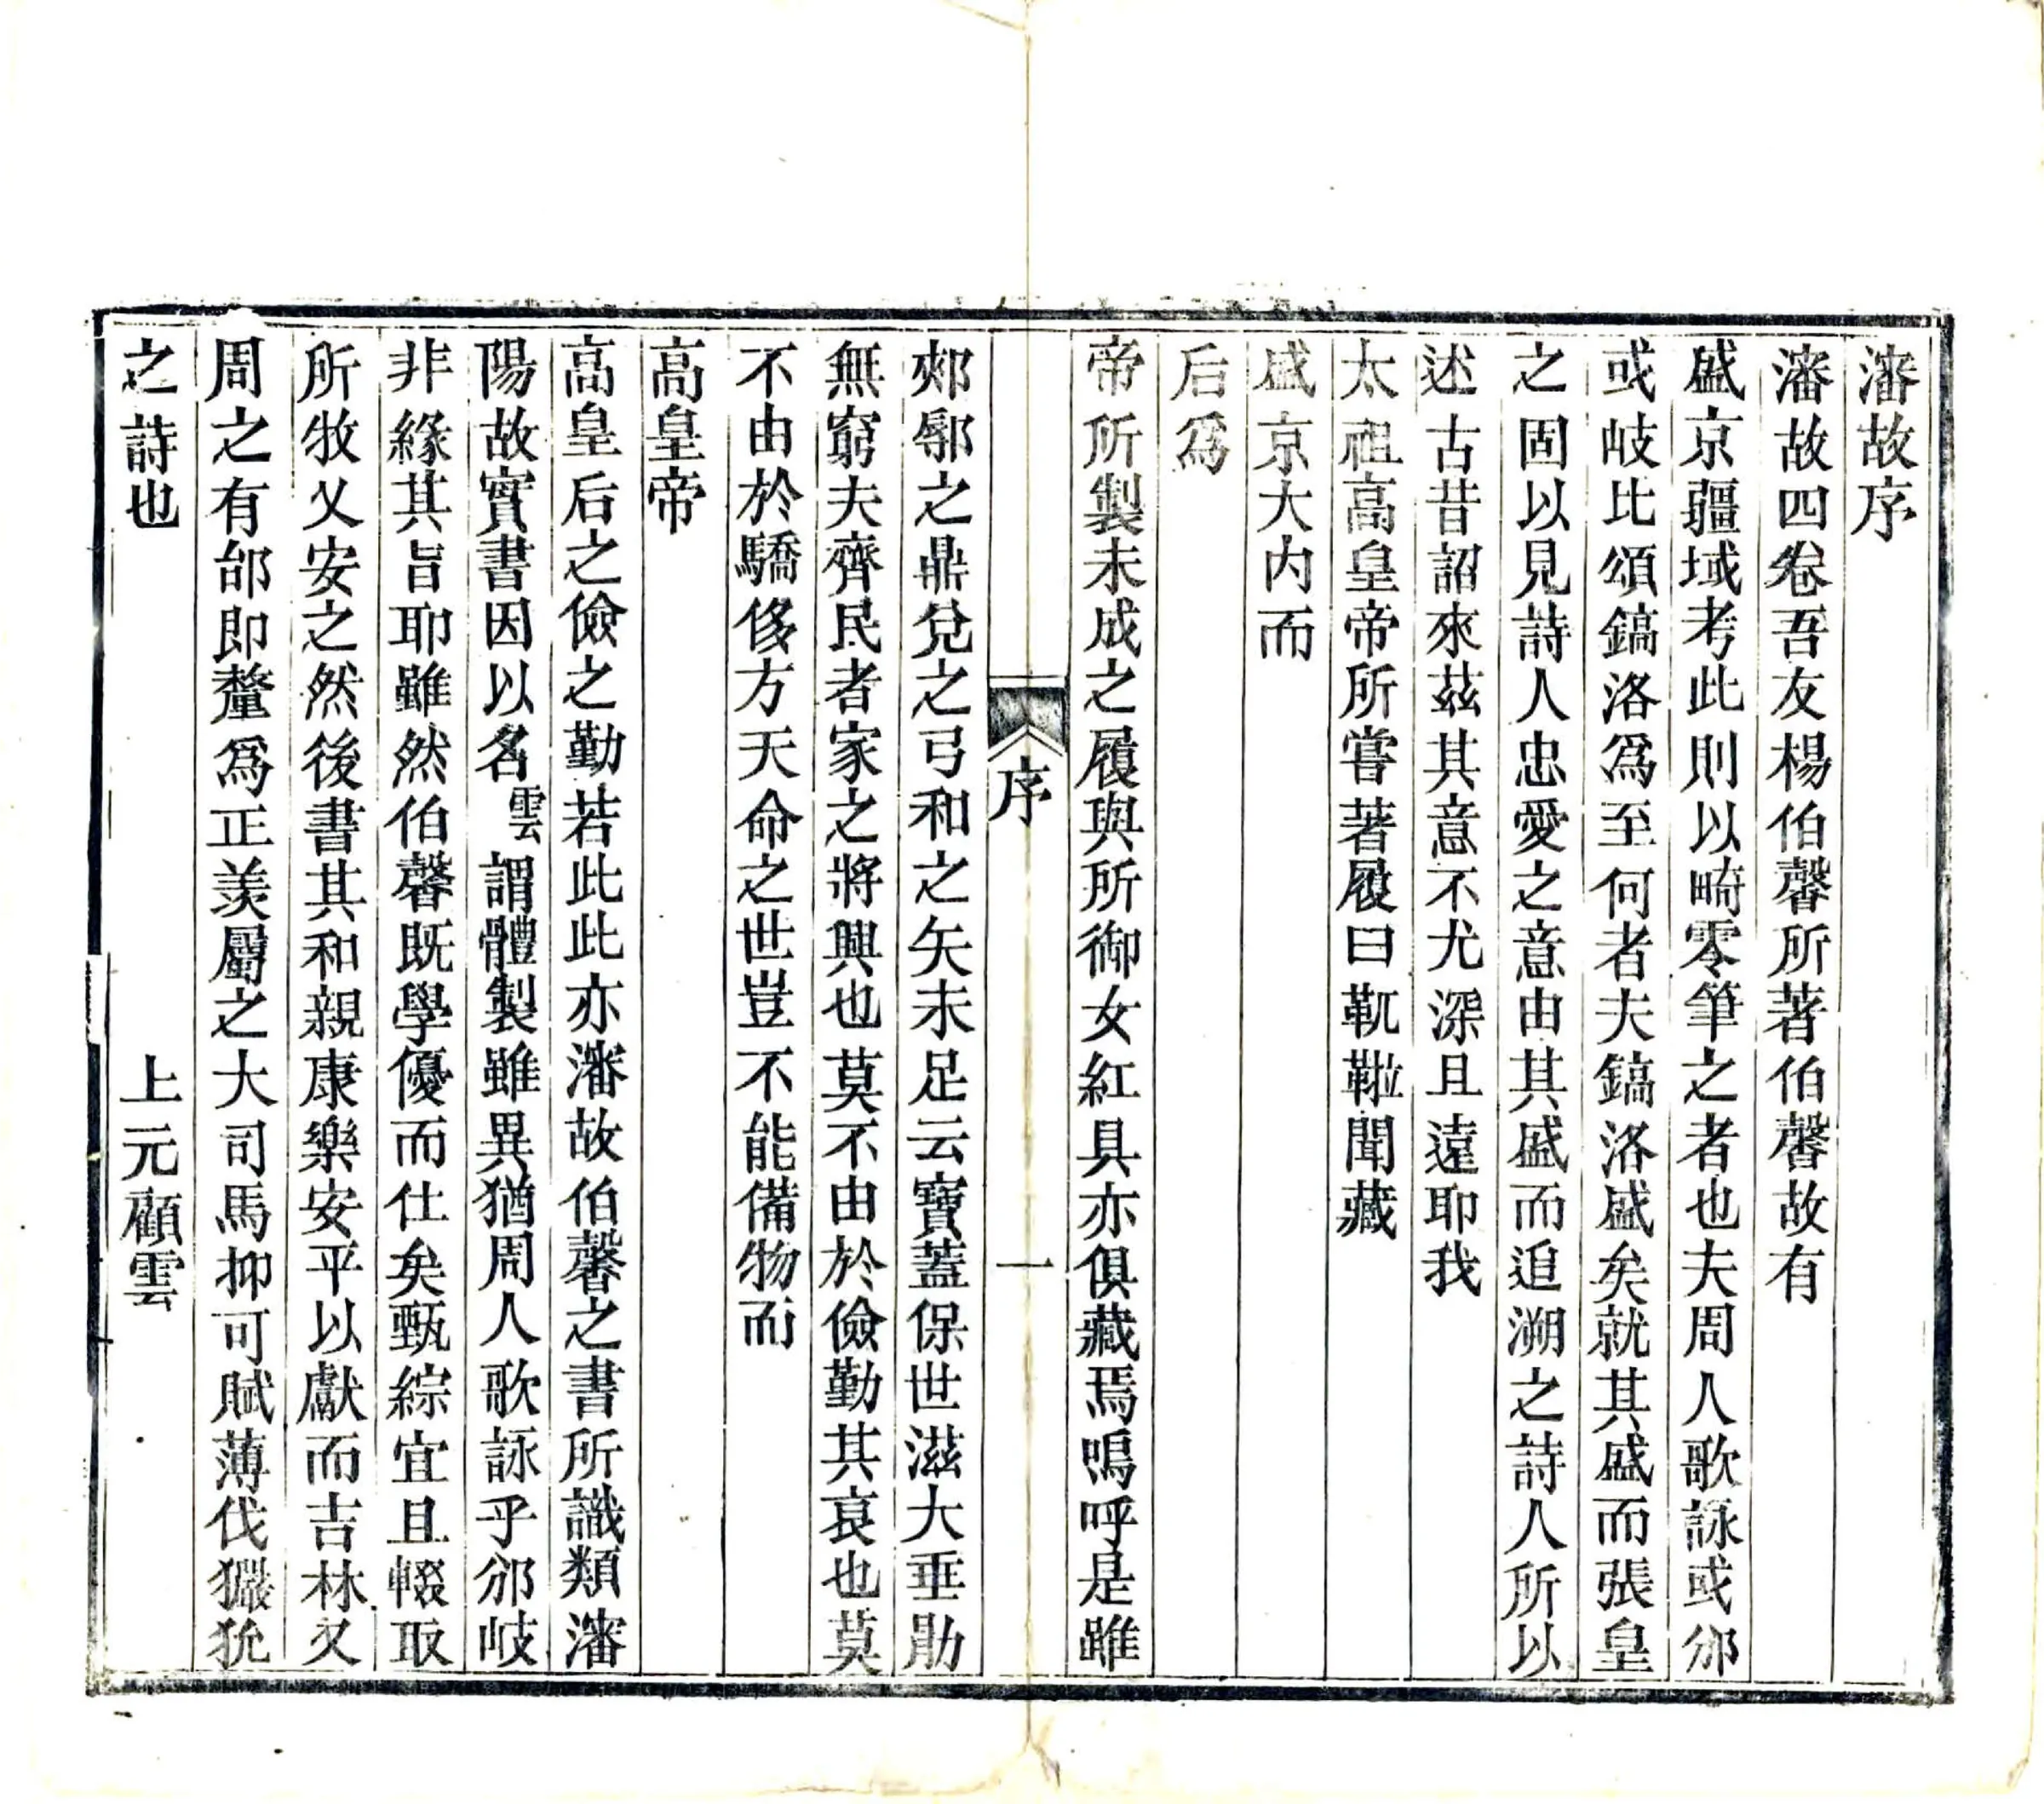 瀋故序
瀋故四卷吾友楊伯馨所著伯馨故有
盛京疆域考此則以畸零筆之者也夫周人歌詠或邠
或岐比頌鎬洛爲至何者夫鎬洛盛矣就其盛而張皇
之固以見詩人忠愛之意由其盛而追溯之詩人所以
述古昔詔來茲其意不尤深且遠耶我
太祖高皇帝所嘗著履曰靰鞡聞藏
盛京大內而
后爲
帝所製未成之履與所御女紅具亦俱藏焉嗚呼是雖
序
一
郟鄏之鼎兌之弓和之矢未足云寶蓋保世滋大垂勛
無窮夫齊民者家之將興也莫不由於儉勤其哀也莫
不由於驕侈方天命之世豈不能備物而
高皇帝
高皇后之儉之勤若此此亦瀋故伯馨之書所識類瀋
陽故實書因以名雲謂體製雖異猶周人歌詠乎邠岐
非緣其旨耶雖然伯馨既學優而仕矣甄綜宜且輟取
所牧乂安之然後書其和親康樂安平以獻而吉林又
周之有邰即釐爲正羨屬之大司馬抑可賦薄伐玁狁
之詩也
上元顧雲